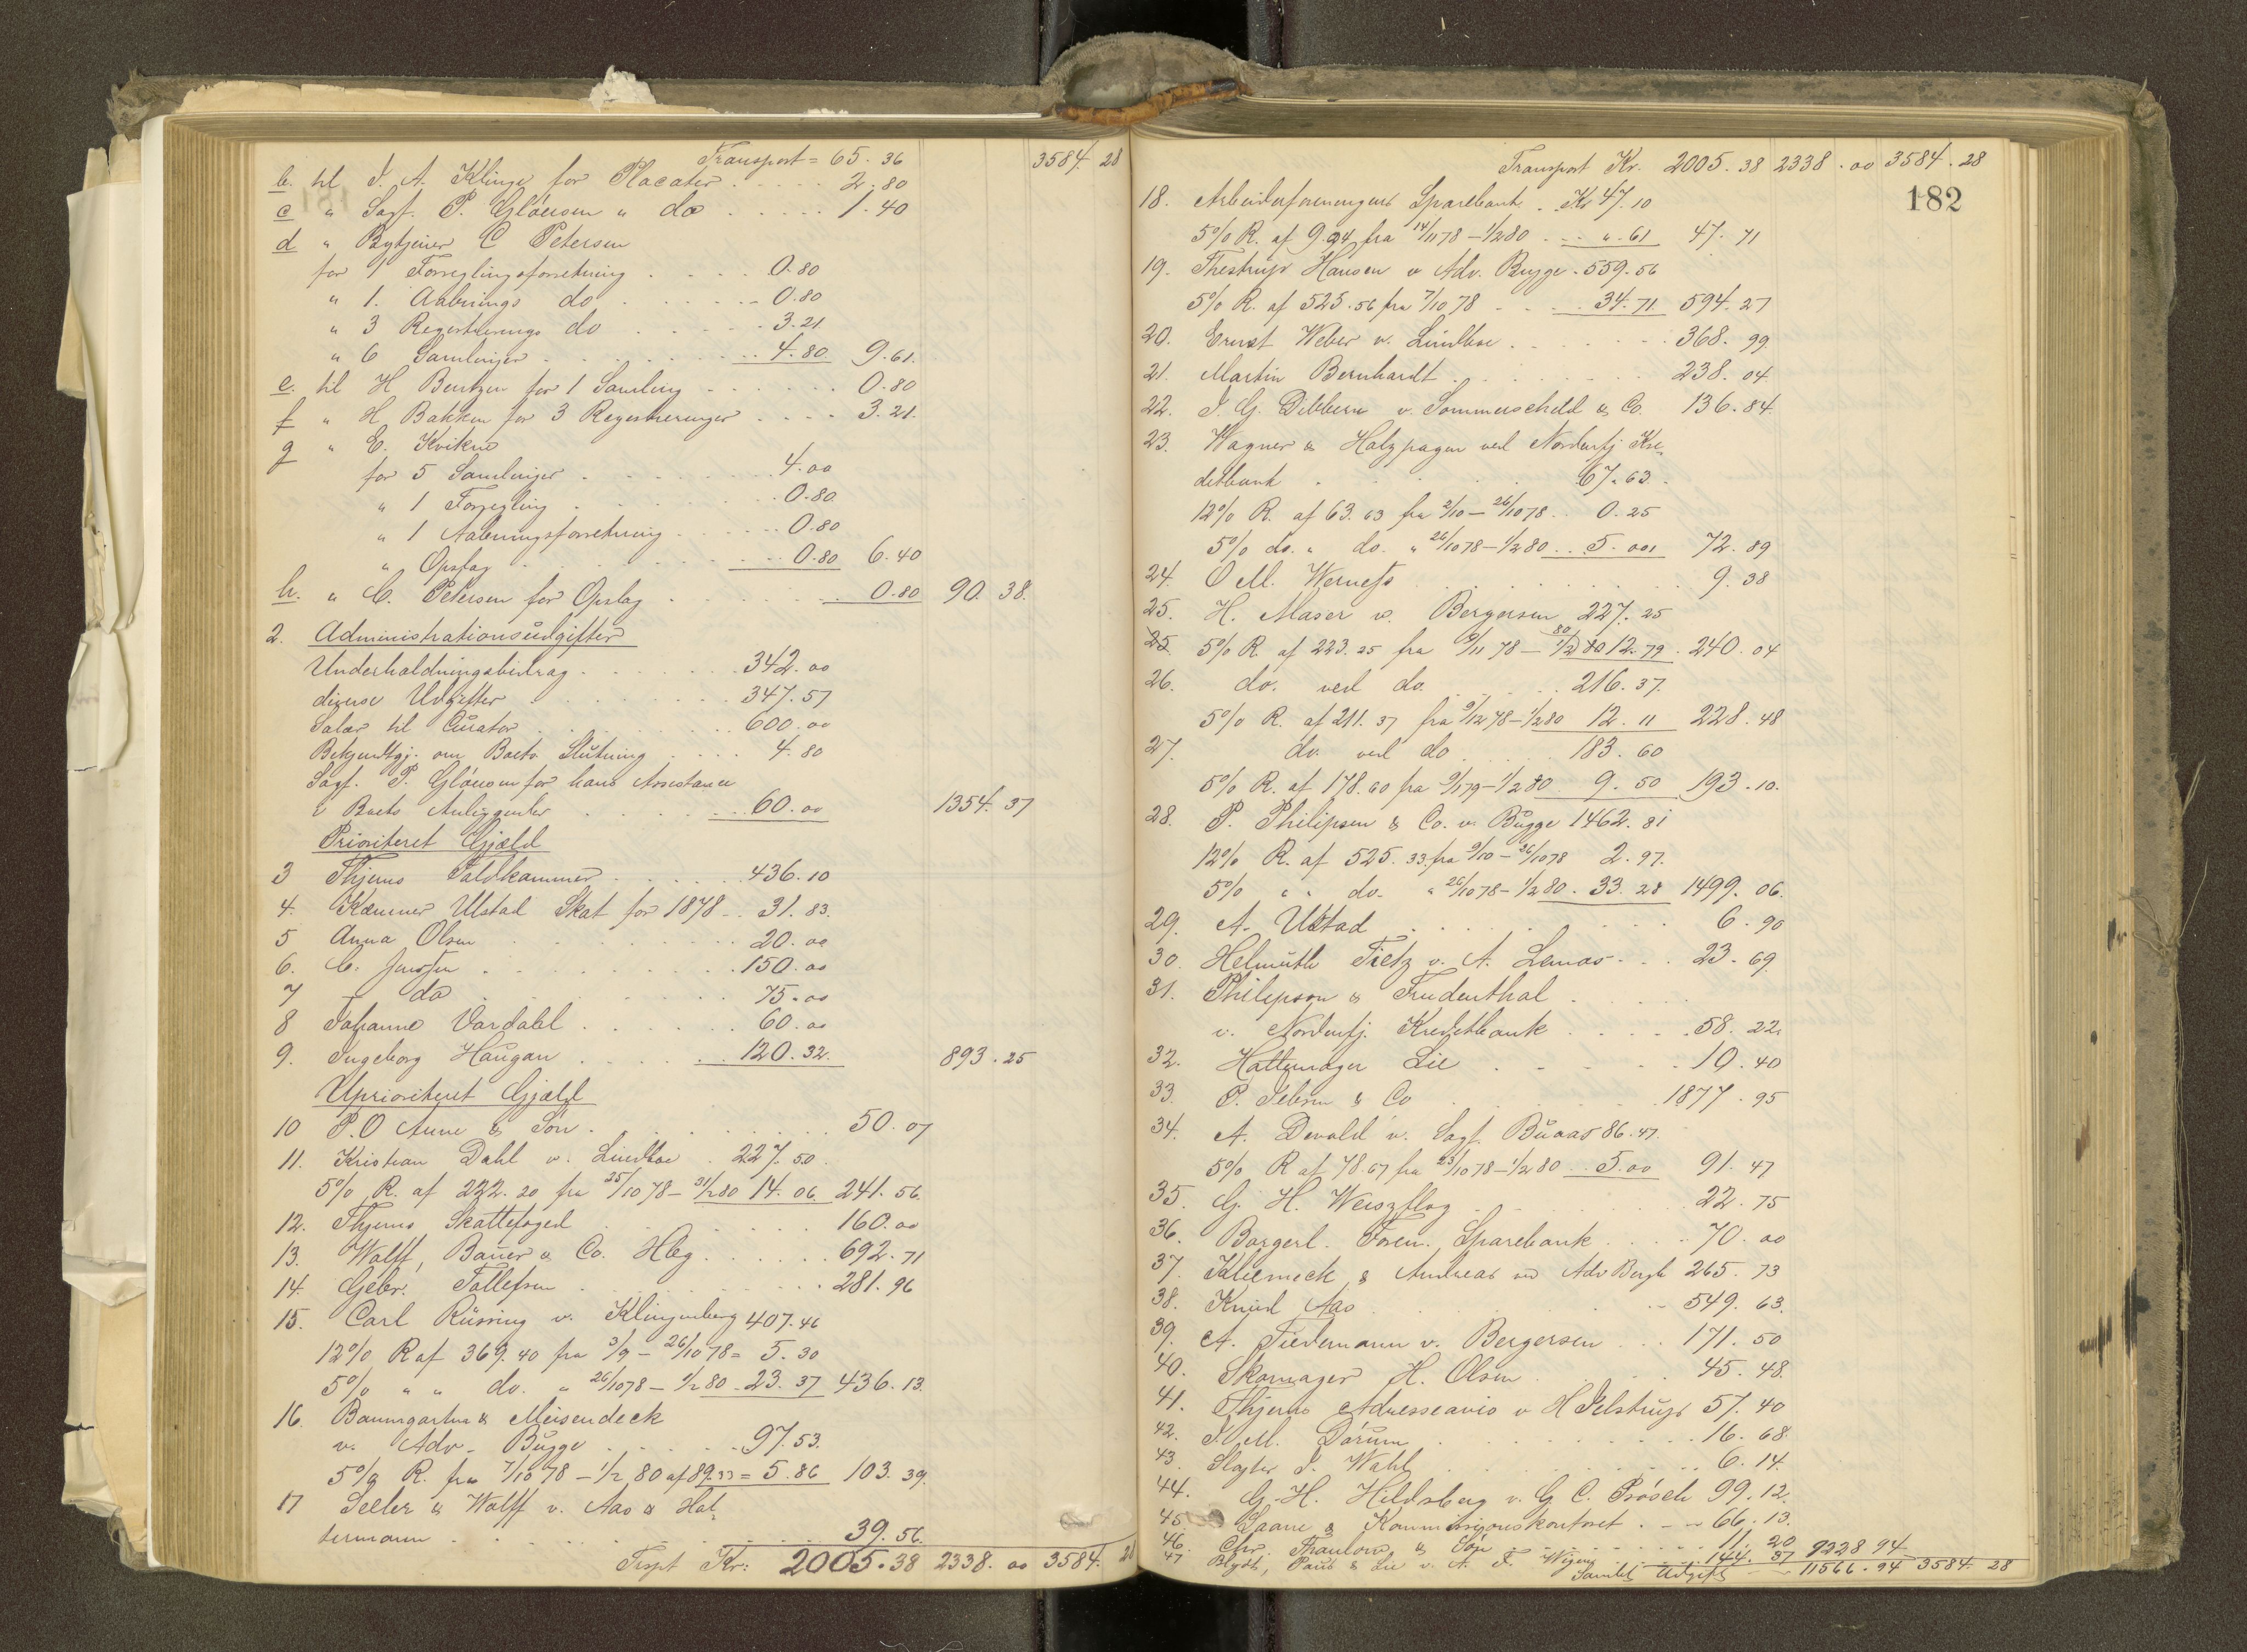 Transport = 65.36 3584.28
b. til J. A. Klinge for Placater 2.80
c " Sagf. P. Glöersen " do 1.40
d " Bytjener C Petersen
for 1 Forseglingsforretning 0.80
" 1. Aabnings do 0.80
" 3 Registrerings do 3.21
" 6 Samlinger 4.80 9.61.
e. til H Bentzen for 1 Samling 0.80
f " H Bakken for 3 Registreringer 3.21.
g " E. Kvikne
for 5 Samlinger 4.00
" 1 Forsegling 0.80
" 1 Aabningsforretning 0.80
" Opslag 0.80 6.40
h. " C. Petersen for Opslag 0.80 90.38.
2. Administrationsudgifter
Underholdningsbidrag 342.00
diverse Udgifter 347.57
Salær til Curator 600.00
Bekjendtgj. om Boets Slutning 4.80
Sagf. P. Glöersen for hans Assistance
i Boets Anliggender 60.00 1354.37
Prioriteret Gjæld
3 Thjems Foldkammer 436.10
4. Kæmner Ulstad Skat for 1878 31.83.
5 Anna Olsen 20.00
6. C. Jenssen 150.00
7 — do 75.00
8 Johanne Vardahl 60.00
9. Ingeborg Haugan 120.32. 893.25
Uprioriteret Gjæld
10 P. O Aune & Sön. 50.07
11. Kristian Dahl v. Lindboe 227.50.
5% R. af 222.20 fra 25/10 78 – 31/1 80 14.06. 241.56.
12. Thjems Skattefoged 160.00
13. Wolff, Bauer & Co. Hbg. 692.71
14. Gebr. Tollefsen 281.96
15. Carl Rüsing v. Klingenberg 407.46
12% R af 369.40 fra 3/9 – 26/10 78 = 5.30
5% " " do. " 26/10 78 – 1/2 80 23.37 436.13.
16. Baumgarten & Meisendeck
v. Adv. Bugge 97.53.
5% R. fra 7/10 78 – 1/2 80 af 89.33 = 5.86 103.39.
17 Seeler & Wolff v. Aas & Hal=
termann 39.56.
Trspt Kr: 2005.38 2338.00 3584.28
Transport Kr. 2005.38 2338.00 3584.28
182
18. Arbeiderforeningens Sparebank. Kr 47.10
5% R. af 9.94 fra 14/11 78 – 1/2 80 ".61 47.71
19. Thestrup Hansen v Adv. Bugge 559.56
5% R. af 525.56 fra 7/10 78 34.71. 594.27
20. Ernst Weber v. Lindboe 368.99.
21. Martin Bernhardt 238.04
22. J. G. Dibbern v. Sommerscheld & Co. 136.84.
23. Wagner & Holzhagen ved Nordenfj Kre=
ditbank 67.63.
12% R. af 63.63 fra 2/10 – 26/10 78. 0.25
5% do. " do. " 26/10 78 – 1/2 80 5.001 72.89
24. O M. Werness 9.38
25. H. Maser v. Bergersen 227.25
25. 5% R af 223.25 fra 9/11 78 – 1/2 80 12.79. 240.04
26. do. ved do 216.37.
5% R. af 211.37 fra 9/12 78 – 1/2 80 12.11 228.48
27. do. ved do 183.60
5% R. af 178.60 fra 9/1 79 – 1/2 80 9.50 193.10.
28. P. Philipsen & Co. v. Bugge 1462.81
12% R. af 525.33 fra 9/10 – 26/10 78 2.97.
5% " " do. " 26/10 78 – 1/2 80. 33.28 1499.06.
29. A. Ustad 6.90
30. Helmuth Tietz v. A. Lemas 23.69
31. Philipson & Freudenthal
v. Nordenfj. Kreditbank 58.22.
32. Hattemager Lie 10.40
33. P. Jebsen & Co 1877.95
34. A. Devold v. Sagf. Buaas 86.47.
5% R af 78.67 fra 23/10 78 – 1/2 80 5.00 91.47
35. G. H. Weiszflog 22.75
36. Borgerl. Foren. Sparebank 70.00
37. Kliemeck & Andreas ved Adv Bergh 265.73
38. Knud Aas 549.63.
39. A. Tiedemann v. Bergersen 171.50
40. Skomager H. Olsen 45.48.
41. Thjems Adresseavis v H Jelstrup 57.40
42. J. M. Dörum 16.68.
43. Slagter J. Wahl 6.14.
44. G. H. Hildsberg v. G. C. Brösch 99.12.
45. Saane & Kommissionskontoret 66.13.
46. Chr. Thaulow & Sön 11.20 9228 94
47 Blydt, Paus & Lie v. A. F. Wigens 144.37
Samlet Udgift 11566.94 3584.28